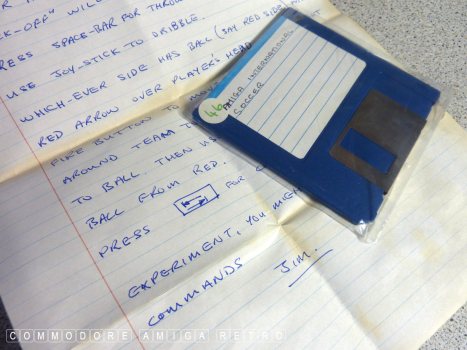 CK-OFF" WILL
RESS SPACE-BAR FOR THROW
USE JOY-STICK TO DRIBBLE.
WHICH-EVER SIDE HAS BALL (SAY RED SIDE)
RED ARROW OVER PLAYER'S HEAD
FIRE BUTTON TO MOV
AROUND TEAM T
TO BALL. THEN US
BALL FROM RED.
PRESS FOR
EXPERIMENT, YOU MIGH
COMMANDS JIM.
46
AMIGA INTERNATIONAL
SOCCER
COMMODORE AMIGA RETRO